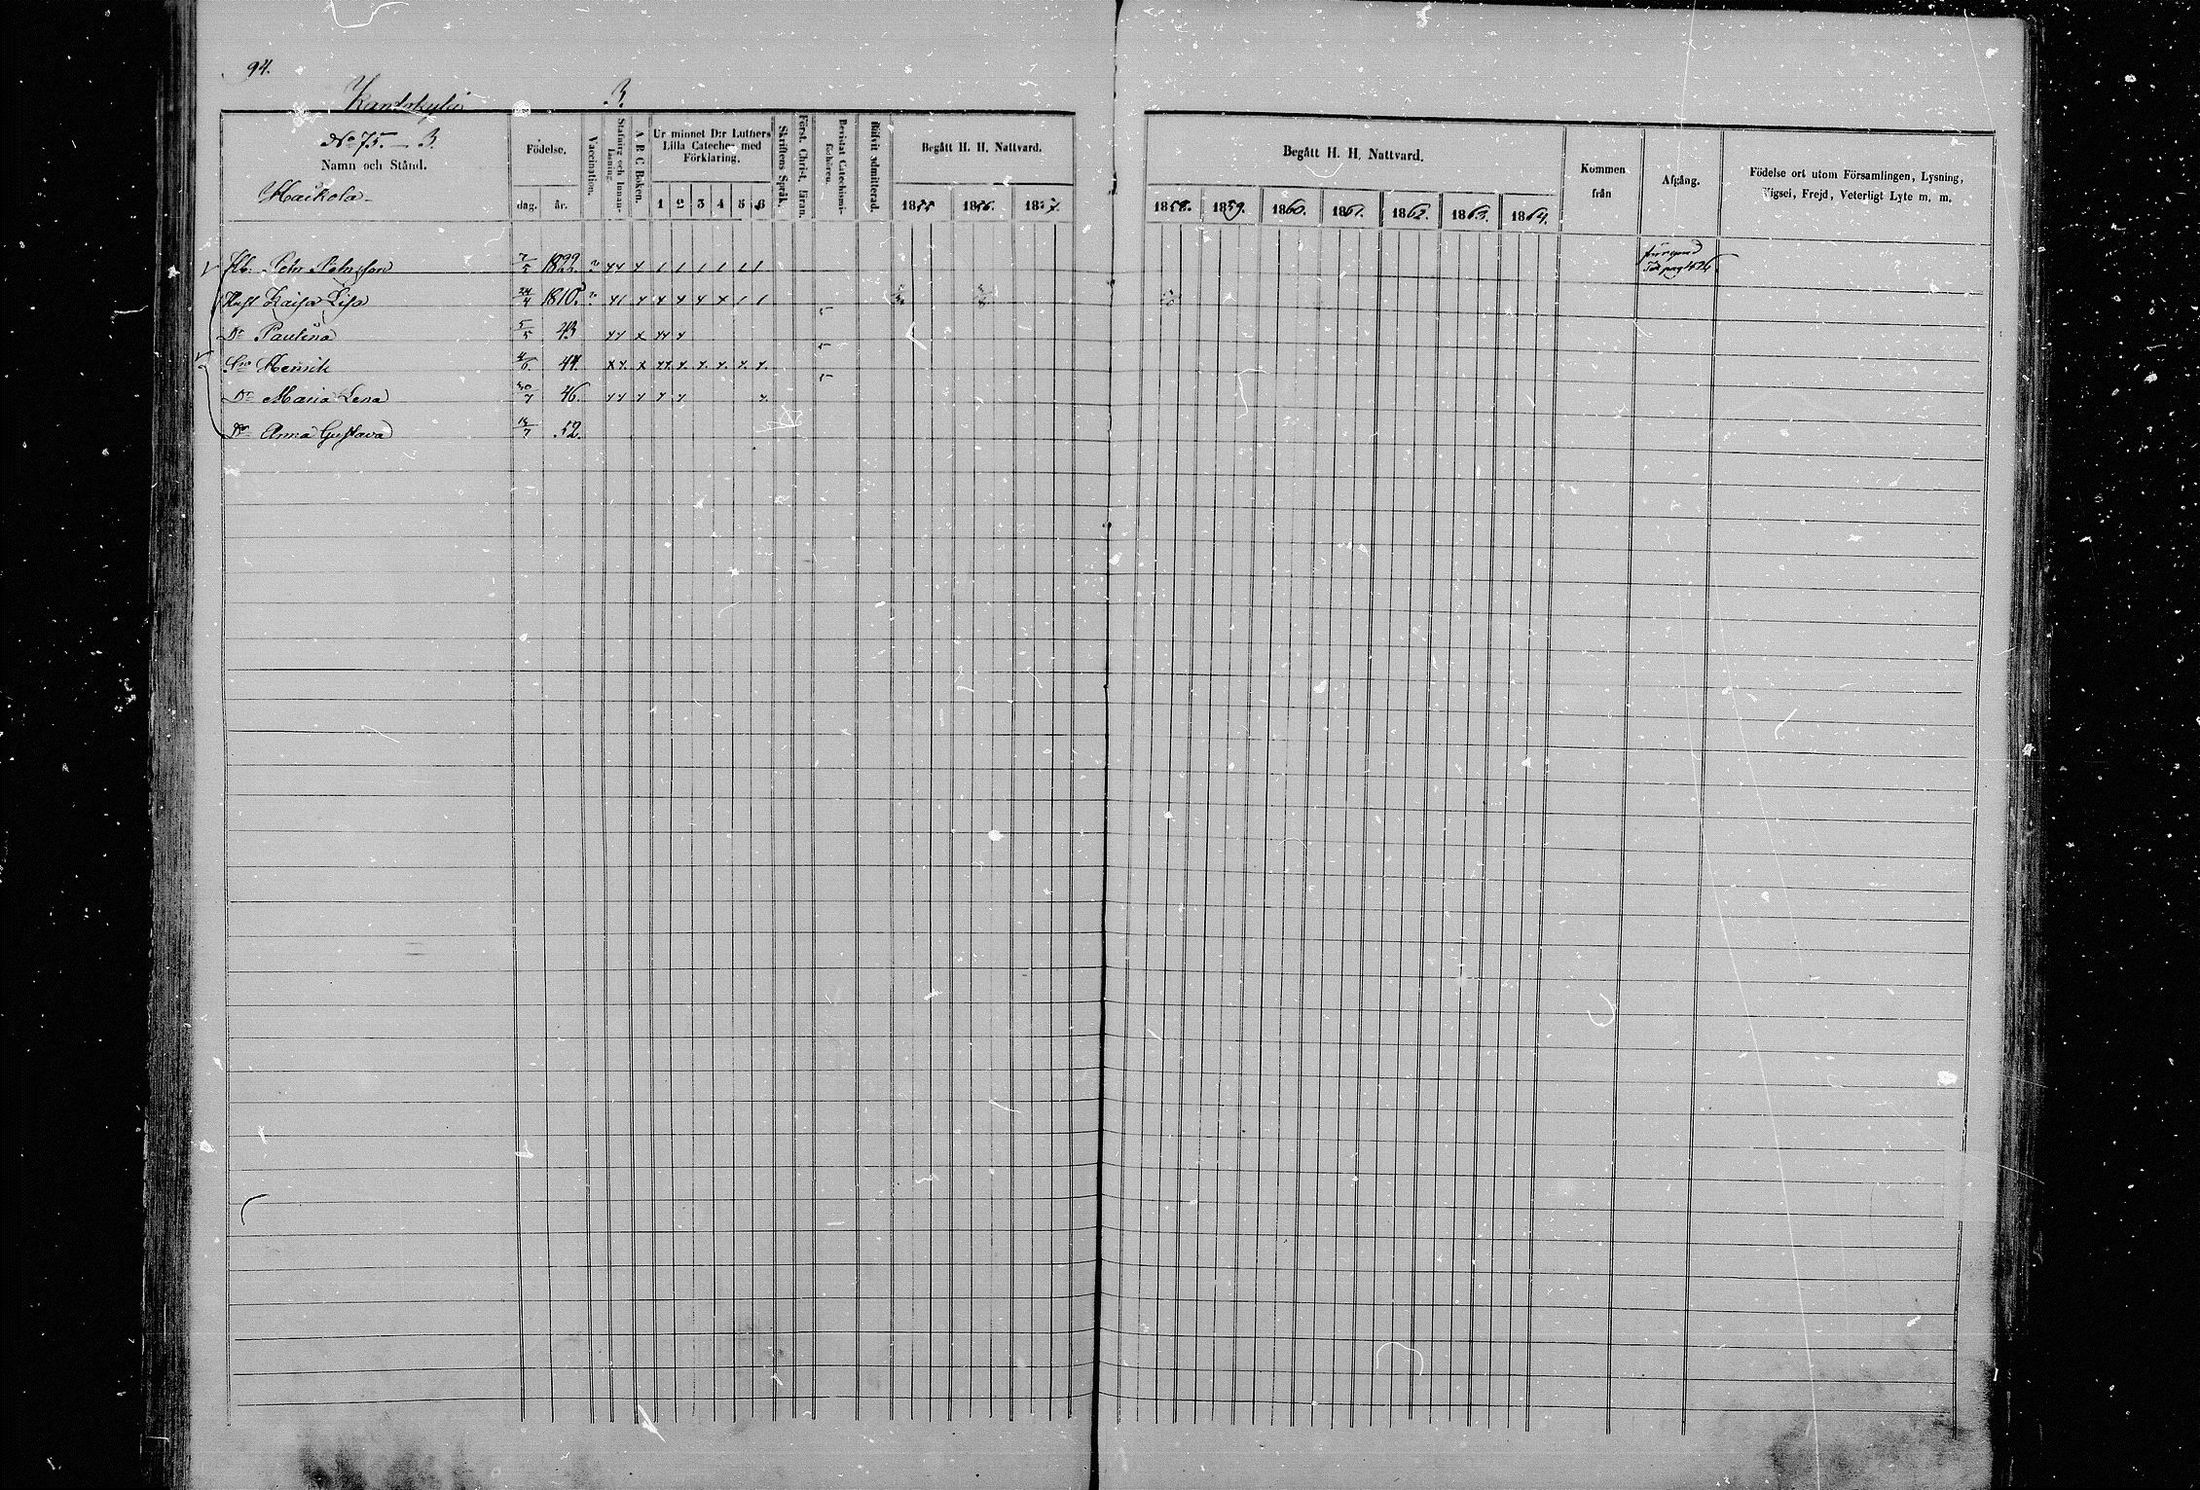 94.
Kantokylä 3
No 75. — 3.
Namn och Stånd.
Maikola
Födelse.
dag. år.
Vaccination.
Stafning och Innanläsning.
A B C Boken.
Ur minnet D:r Luthers Lilla Cateches med Förklaring.
1 2 3 4 5 6
Skriftens Språk.
Först. Christ. läran.
Bevistat Catechismiförhören.
Blifvit admitterad.
Begått H. H. Nattvard.
1855 1856. 1857.
Begått H. H. Nattvard.
1858. 1859. 1860. 1861. 1862. 1863. 1864.
Kommen från
Afgång.
Födelse ort utom Församlingen, Lysning, Vigsel, Frejd, Veterligt Lyte m. m.
Petr Petrsson 7/5 1822. Till pag
Hust Kaisa Lisa 24/4 1810.
Dr Paulina 5/5 43
Son Henrik 44.
Dr Maria Lena 30/7 46.
Dr Anna Gustava 52.